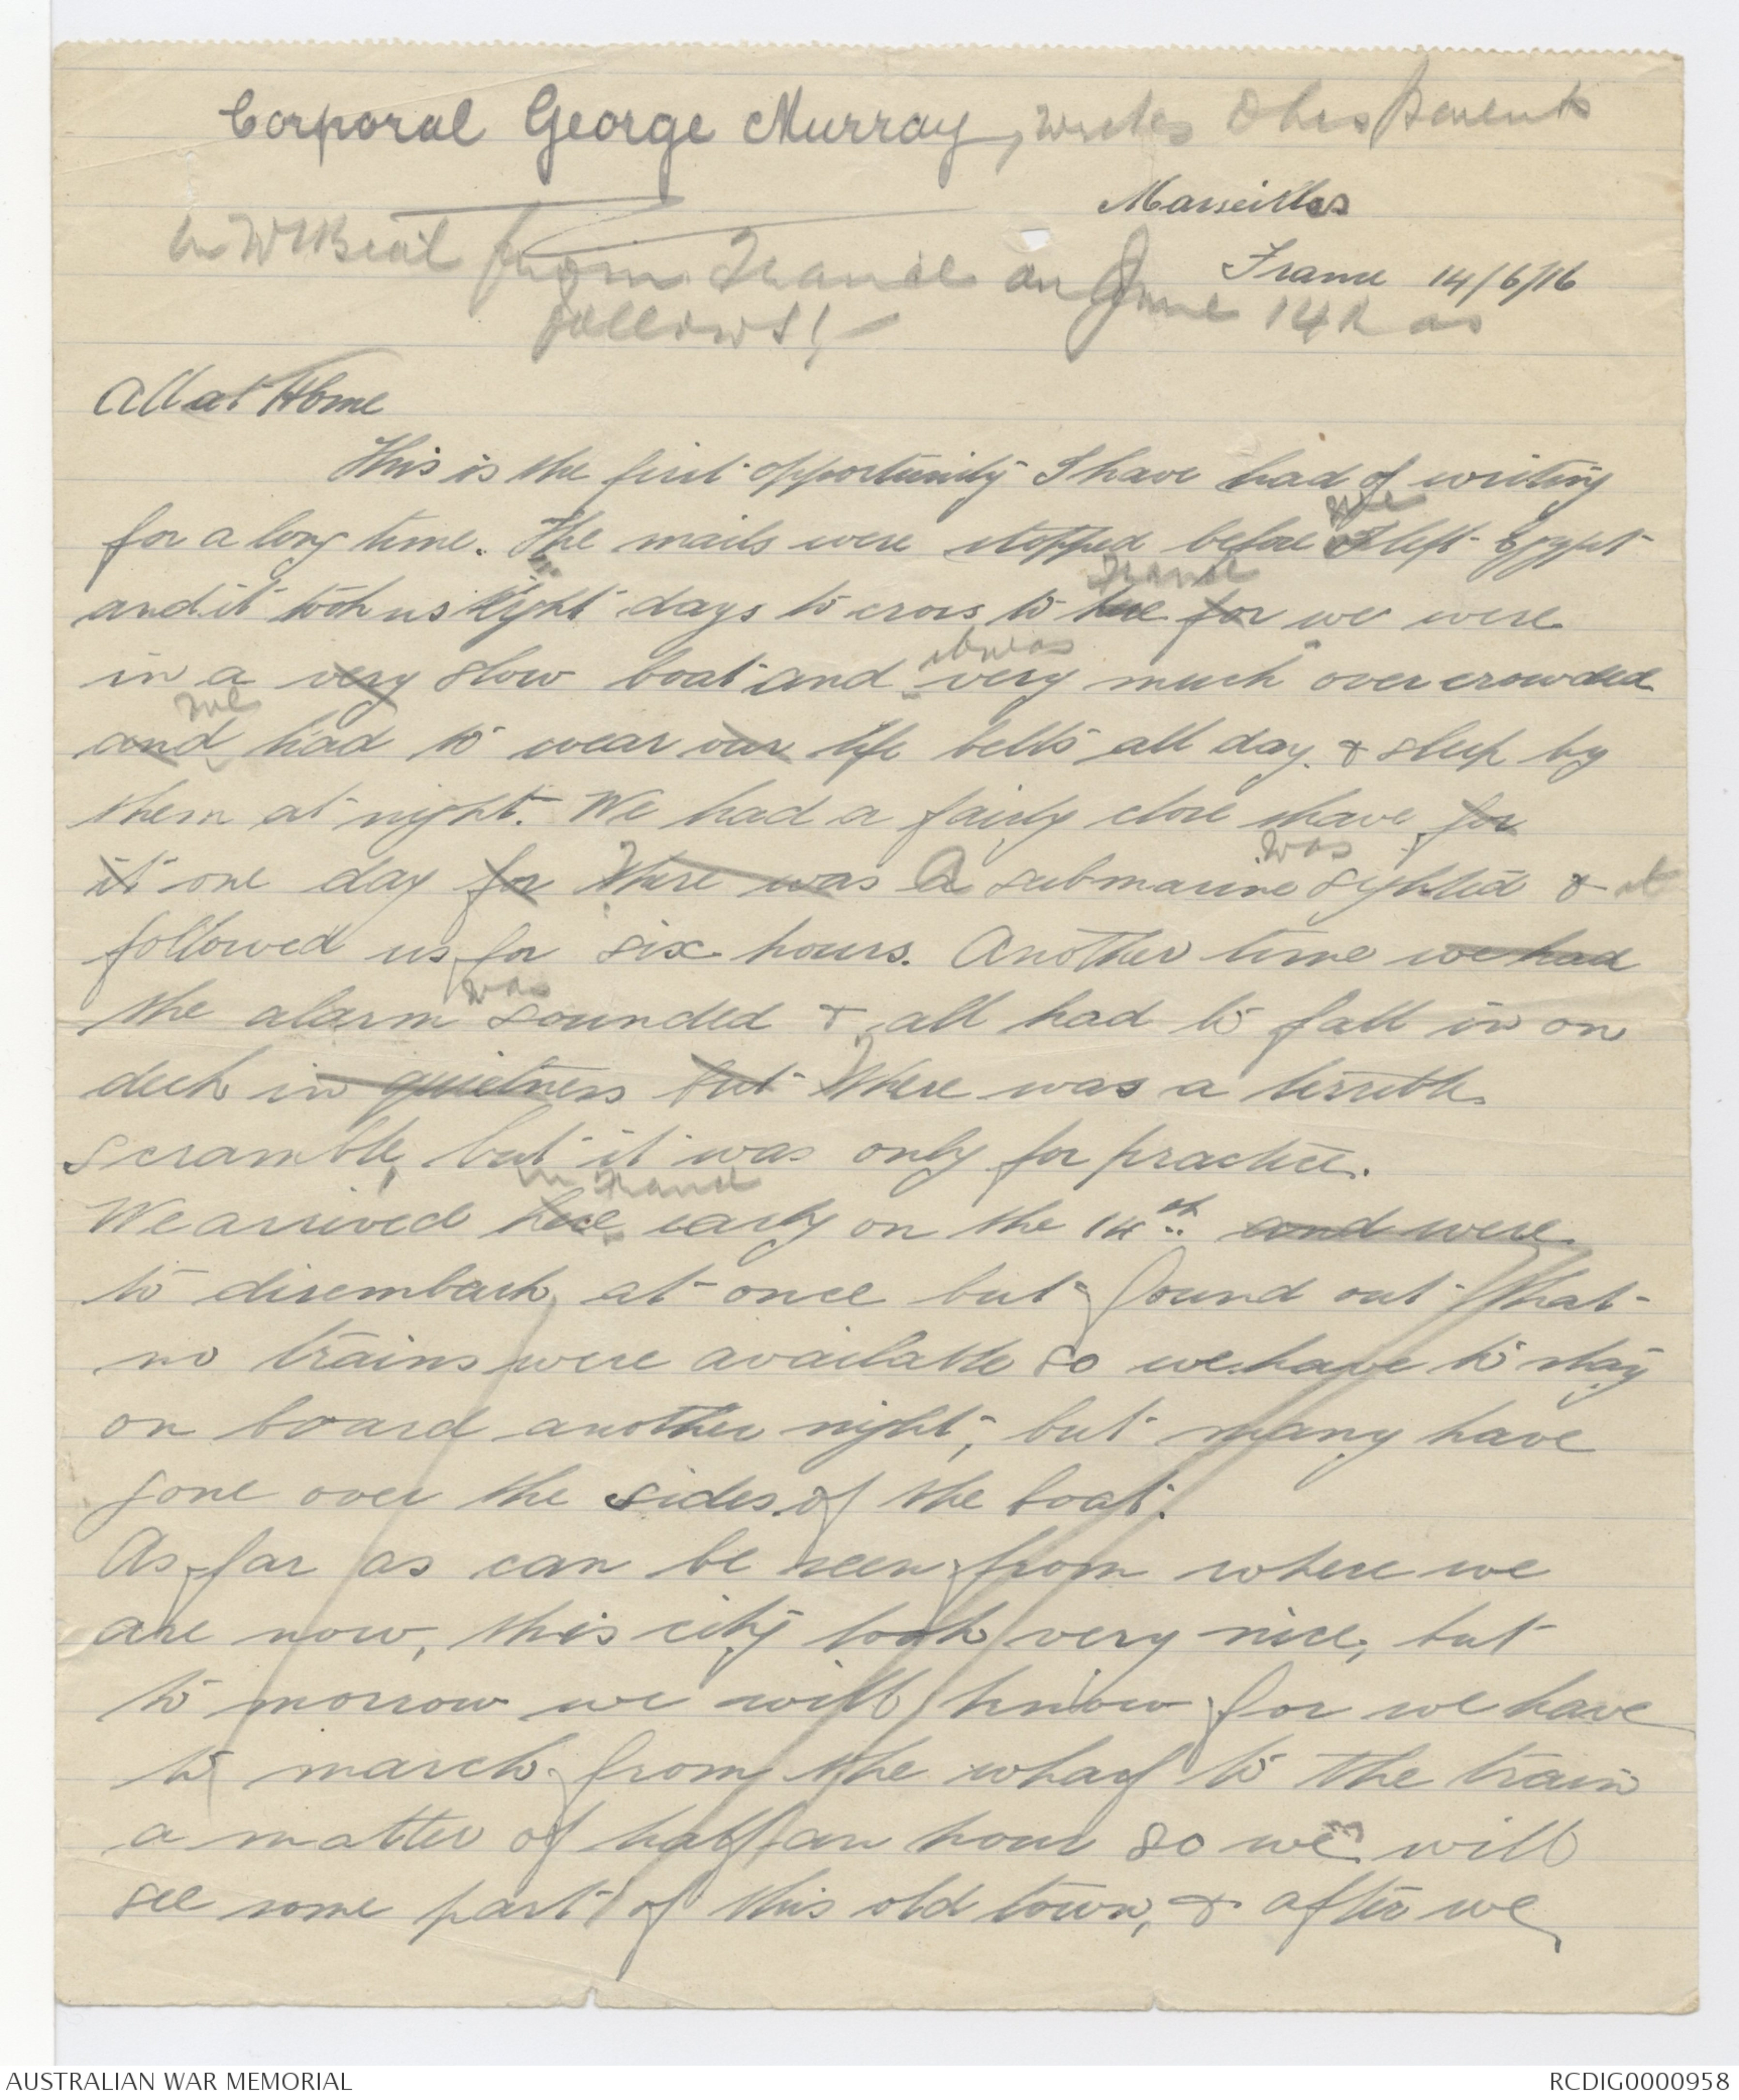 Corporal George Murray, writes to his Parents
Marseilles
in W from France on June 14th as
France 14/6/16
follows!-
All at Home
This is the first opportunity I have had of writing
we
for a long time. The mails were stopped before I left Egypt
France
and it took us eight days to cross to here for we were
it was
in a very slow boat and very much overcrowded
We
and had to wear our life belts all day & sleep by
them at night. We had a fairly close shave for
was
it one day for There was A submarine sighted & it
followed us for six hours. Another time we had
was
the alarm sounded & all had to fall in on
deck in quietness but There was a terrible
scramble, but it was only for practice.
in France
We arrived here early on the 14th and were
to disembark at once but found out that
no trains were available so we have to stay
on board another night, but many have
gone over the sides of the boat.
As far as can be seen from where we
are now, this city look very nice, but
to morrow we will know for we have
to march from the wharf to the train
a matter of half an hour so we will
see some part of this old town, & after we
AUSTRALIAN WAR MEMORIAL
RCDIG0000958